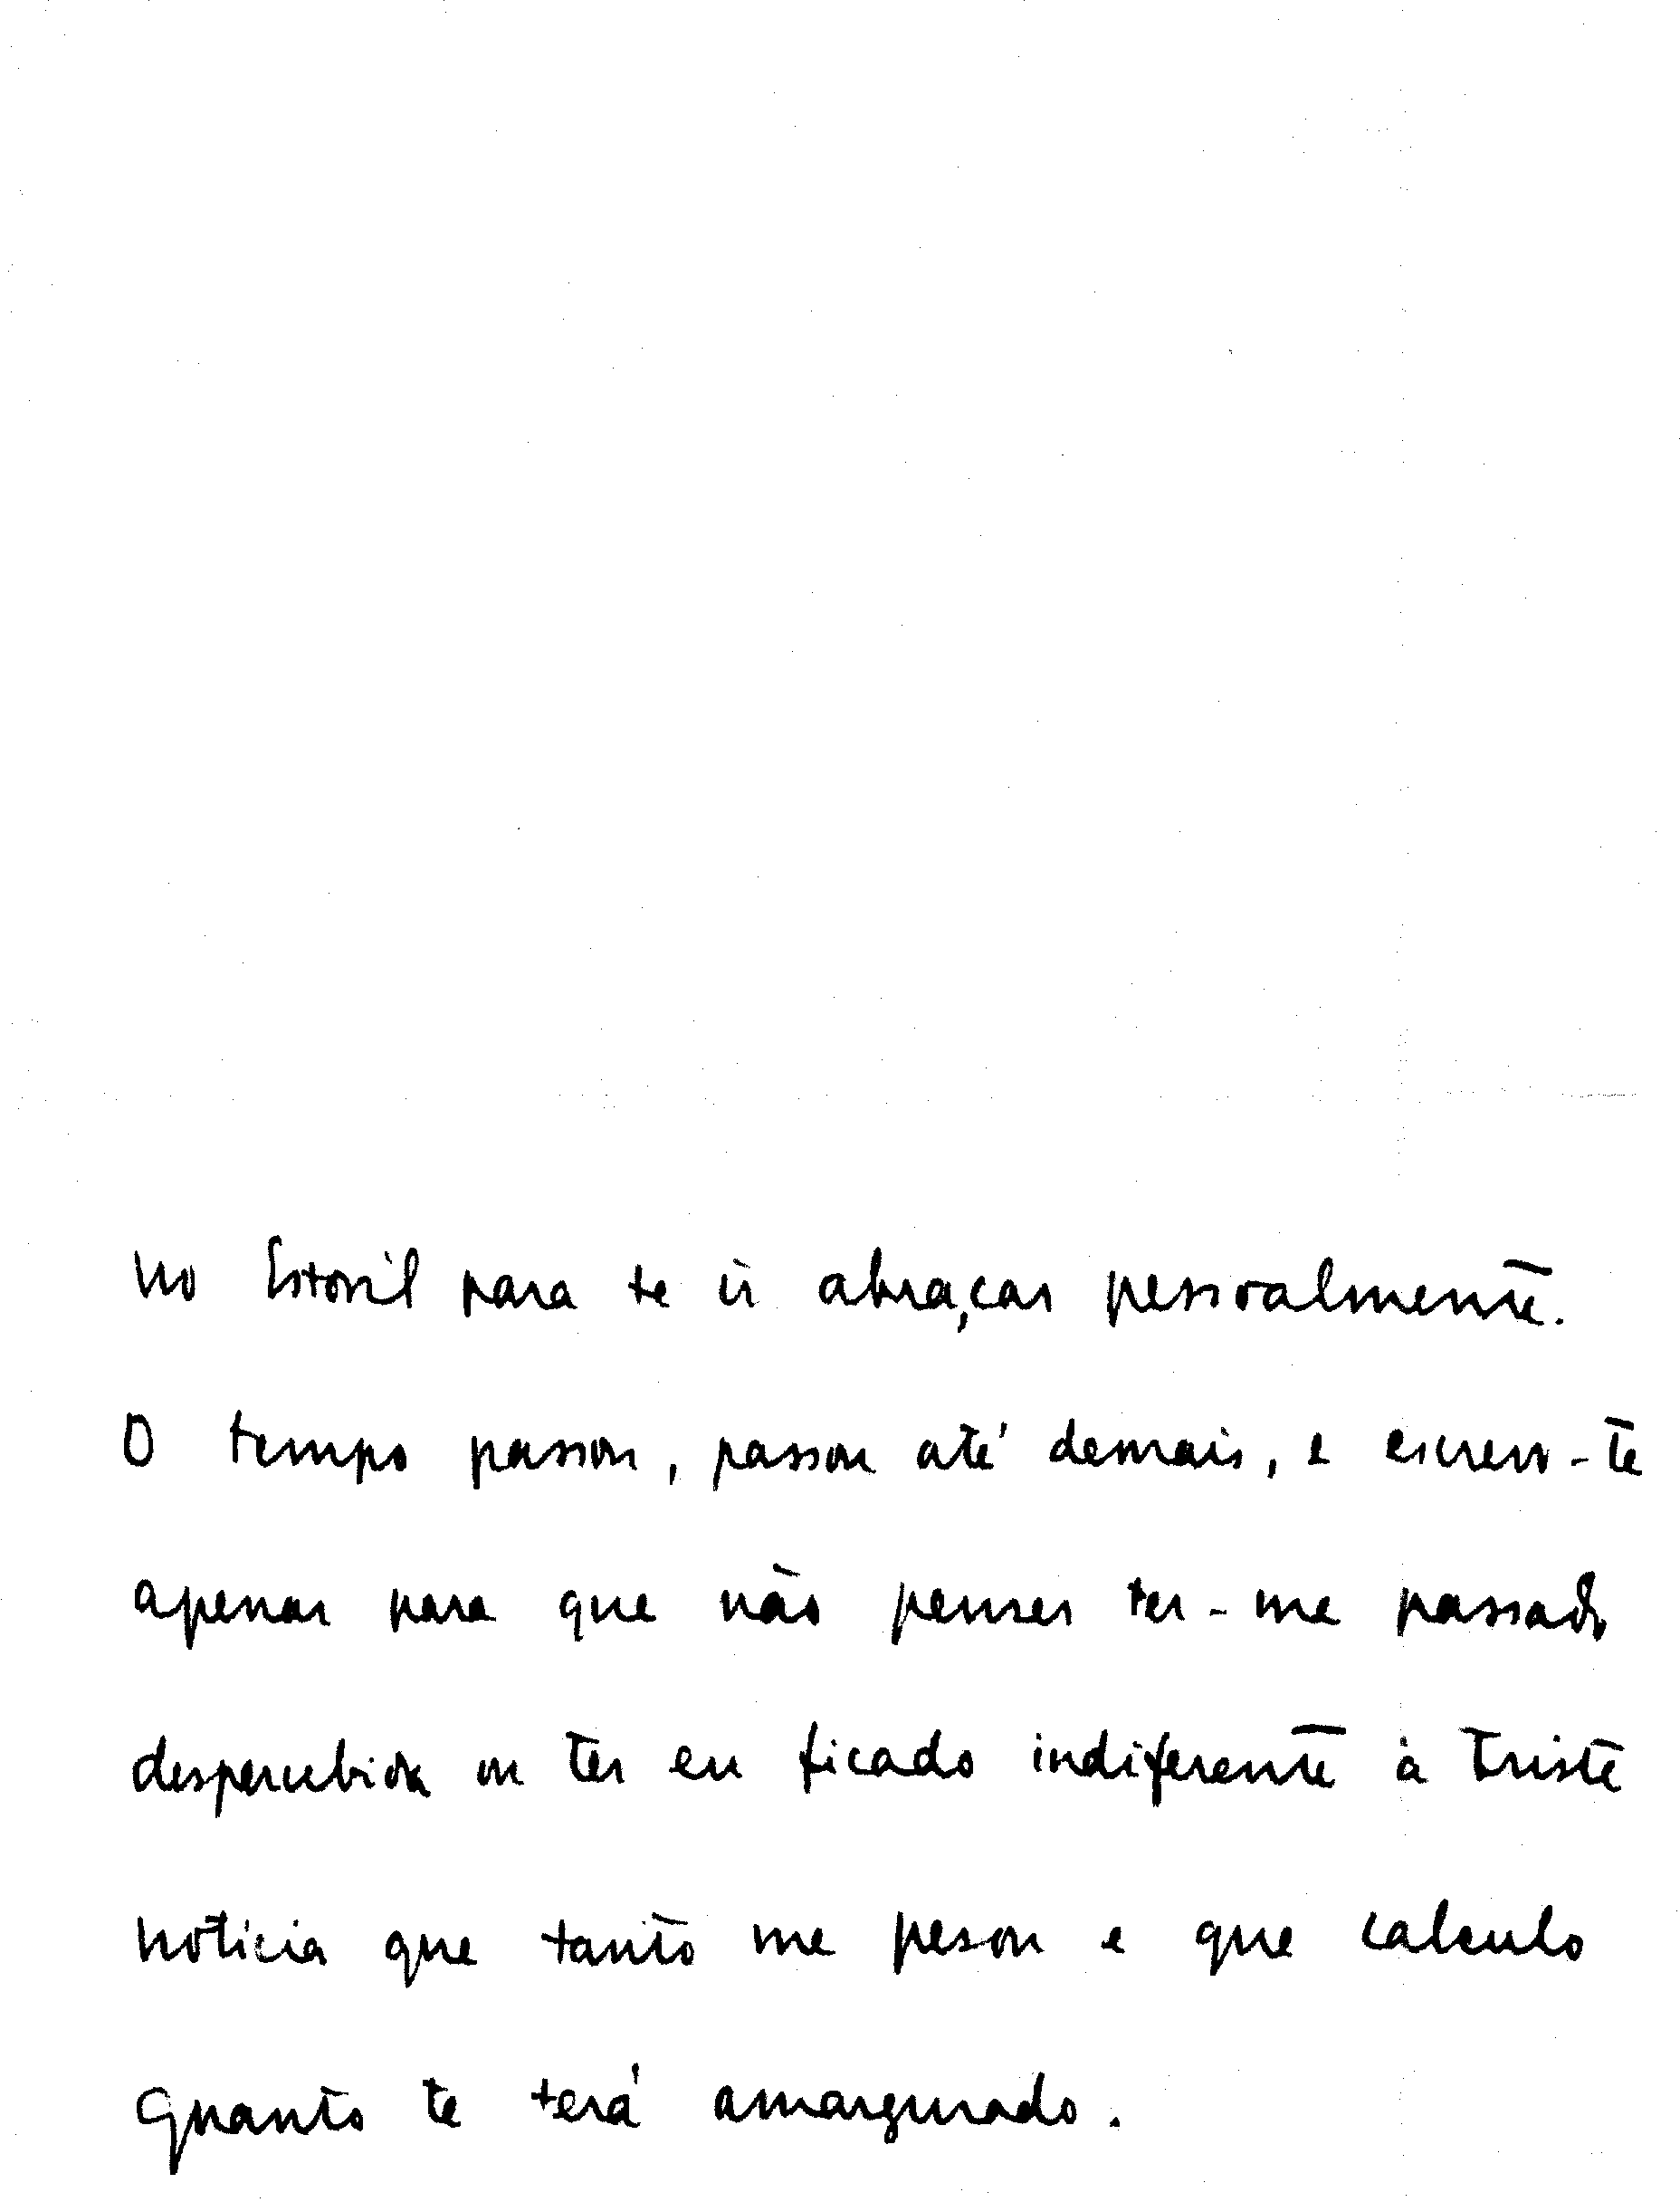 no Estoril para te ir abraçar pessoalmente.
O tempo passou, passou até demais, e escrevo-te
apenas para que não penses ter-me passado
despercebida ou ter eu ficado indiferente à triste
notícia que tanto me pesou e que calculo
quanto te terá amargurado.